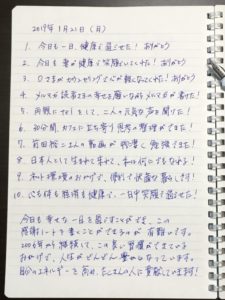 2019年1月21日(月)
1. 今日も一日、健康で過ごせた! ありがとう
2. 今日も妻が健康で笑顔でいてくれた! ありがとう
3. さまがカウンセリングで心が軽くなってくれた! ありがとう
4. メルマガ読者さまの幸せを願いながらメルマガが書けた!
5. 両親にTELをして、二人の元気な声を聞けた!
6. 30分間、カフェに立ち寄り思考の整理ができた!
7. 前田裕二さんの動画が視聴し勉強できた!
8. 日本人として生まれて来れて、私は何にでもなれる!
9. 私は環境のおかげで、便利で快適な暮らし!
10. 心も体も感情も健康で、一日中笑顔で過ごせた!
今日も幸せな一日を過ごすことができ、この
感謝ノートを書くことができるのが有難いです。
2006年から継続して、この良い習慣ができている
おかげで、人生がどんどん豊かになっています。
自分のエネルギーを高め、たくさんの人に貢献していきます!